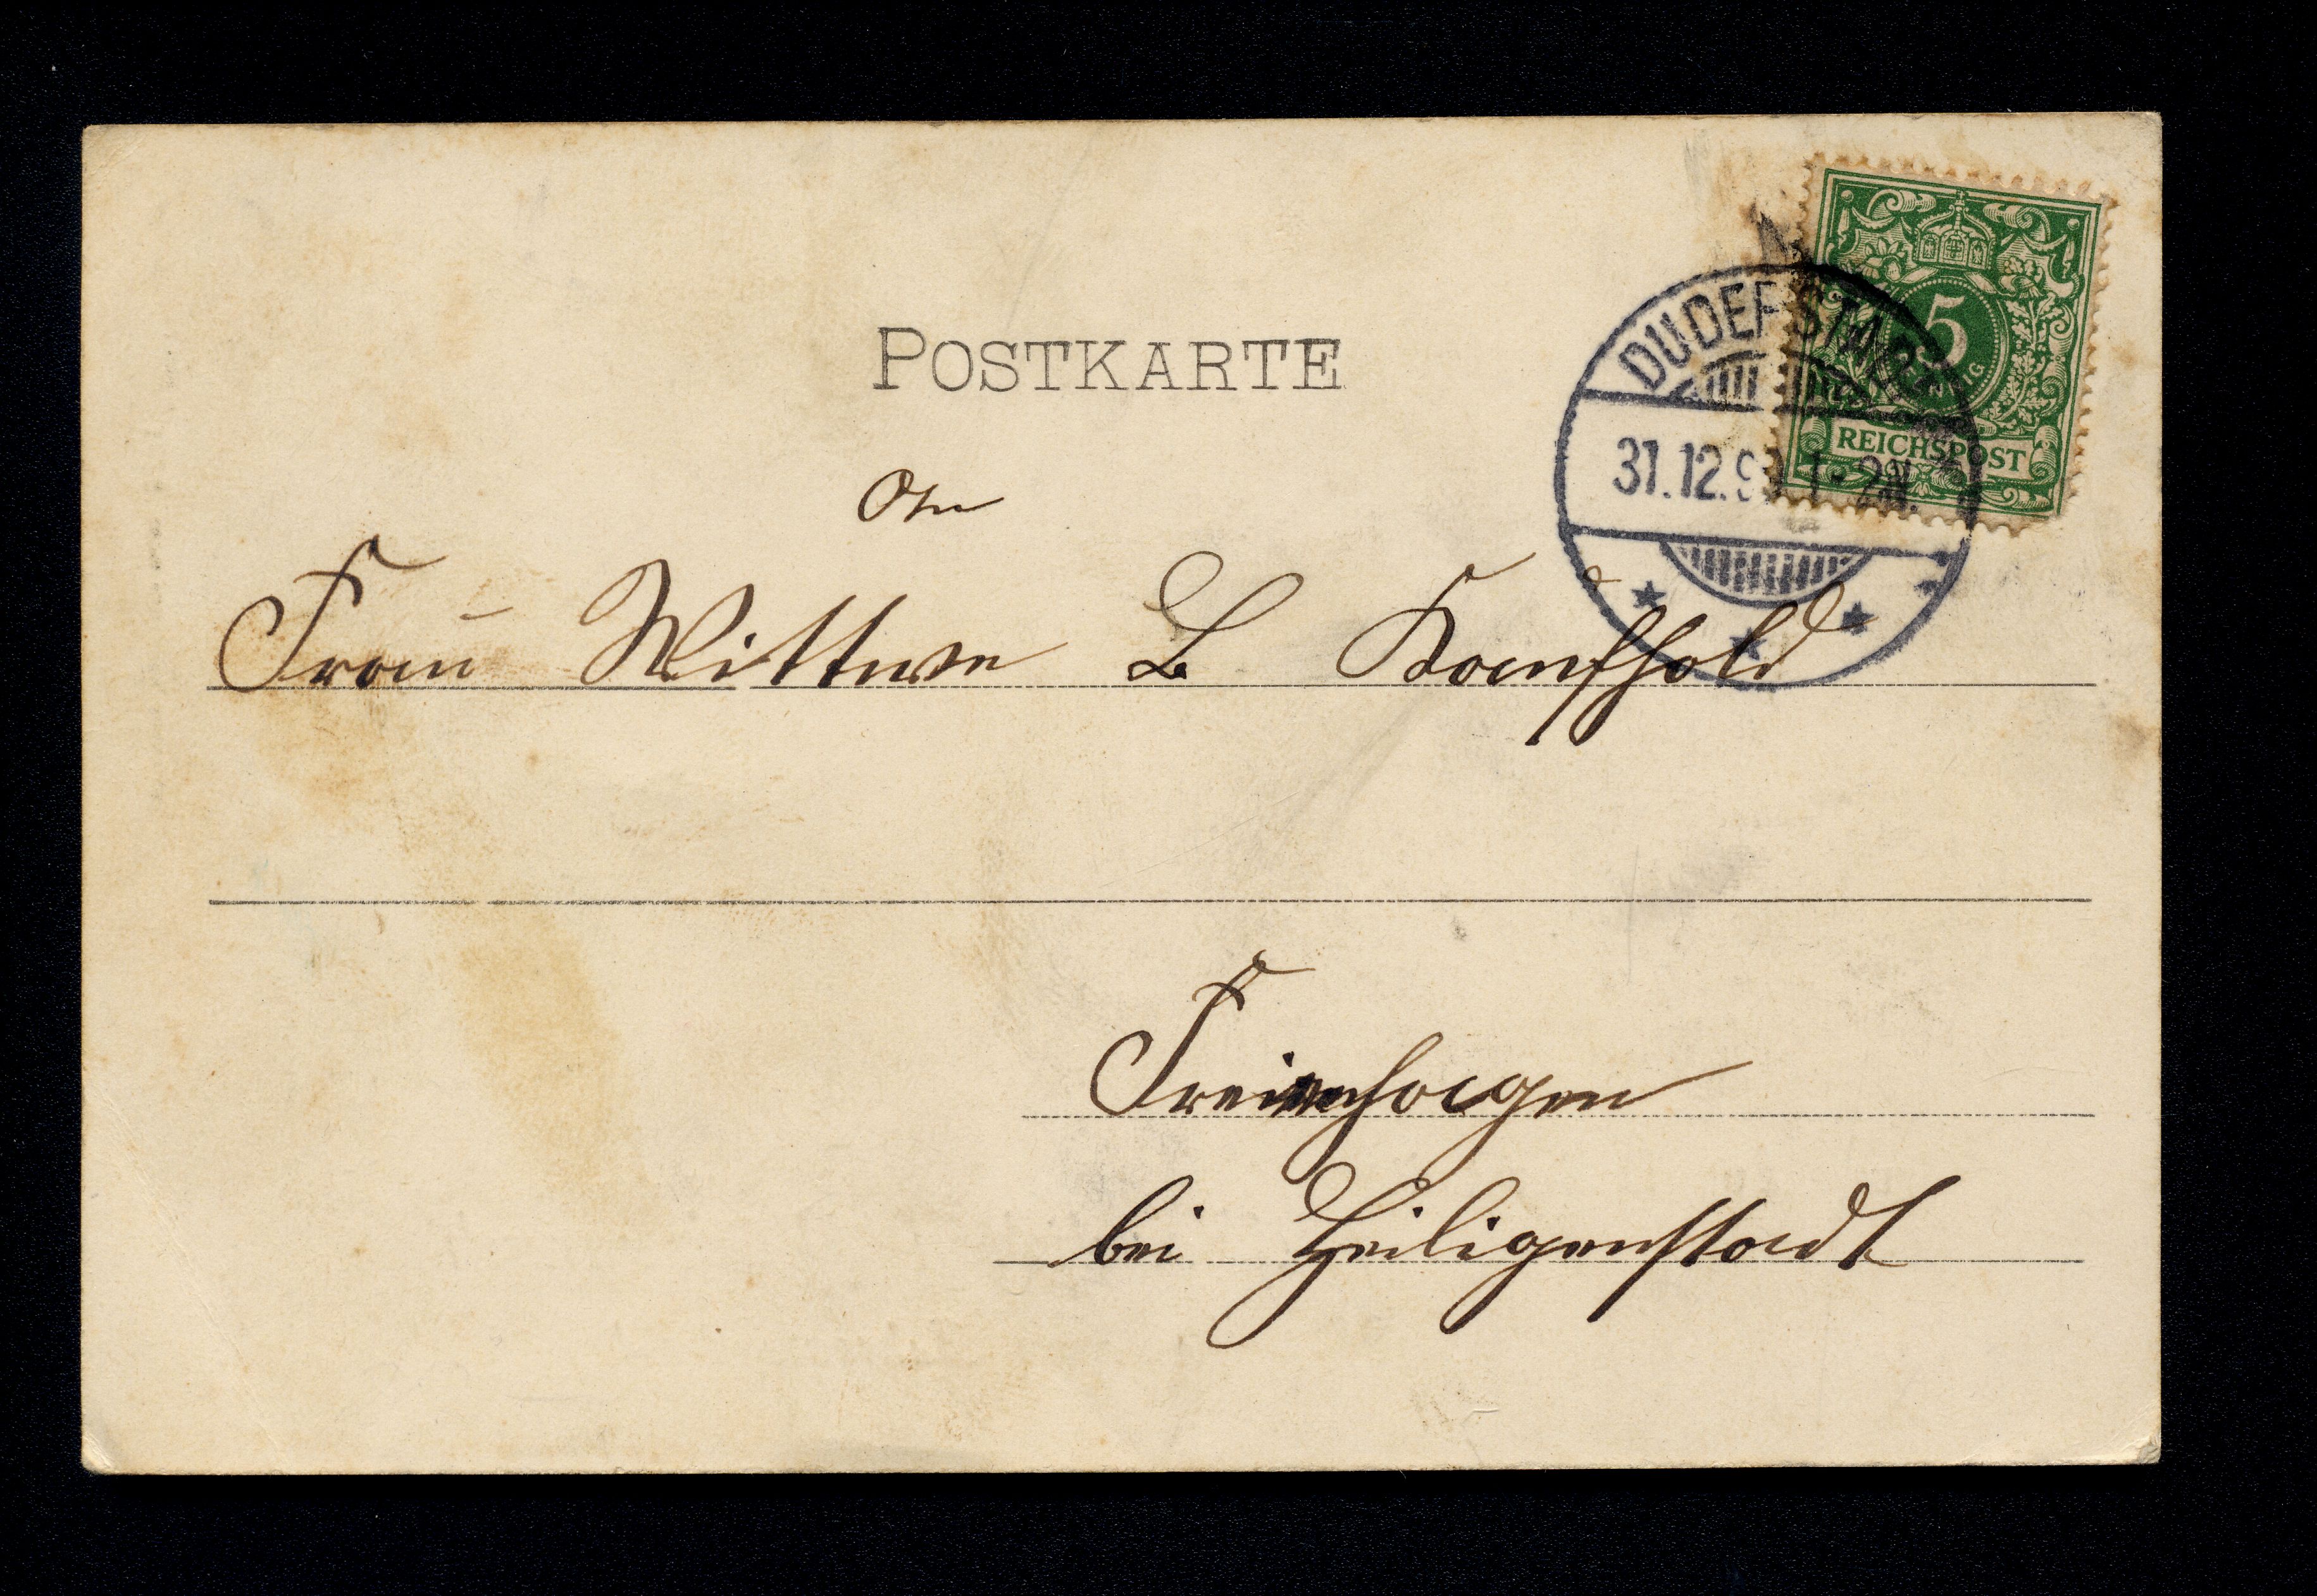 POSTKARTE
DUDERSTADT
5
PFENNIG
REICHSPOST
31.12.9 1-2N.
An
Frau Wittwe L Kaufhold
Freienhagen
bei Heiligenstadt